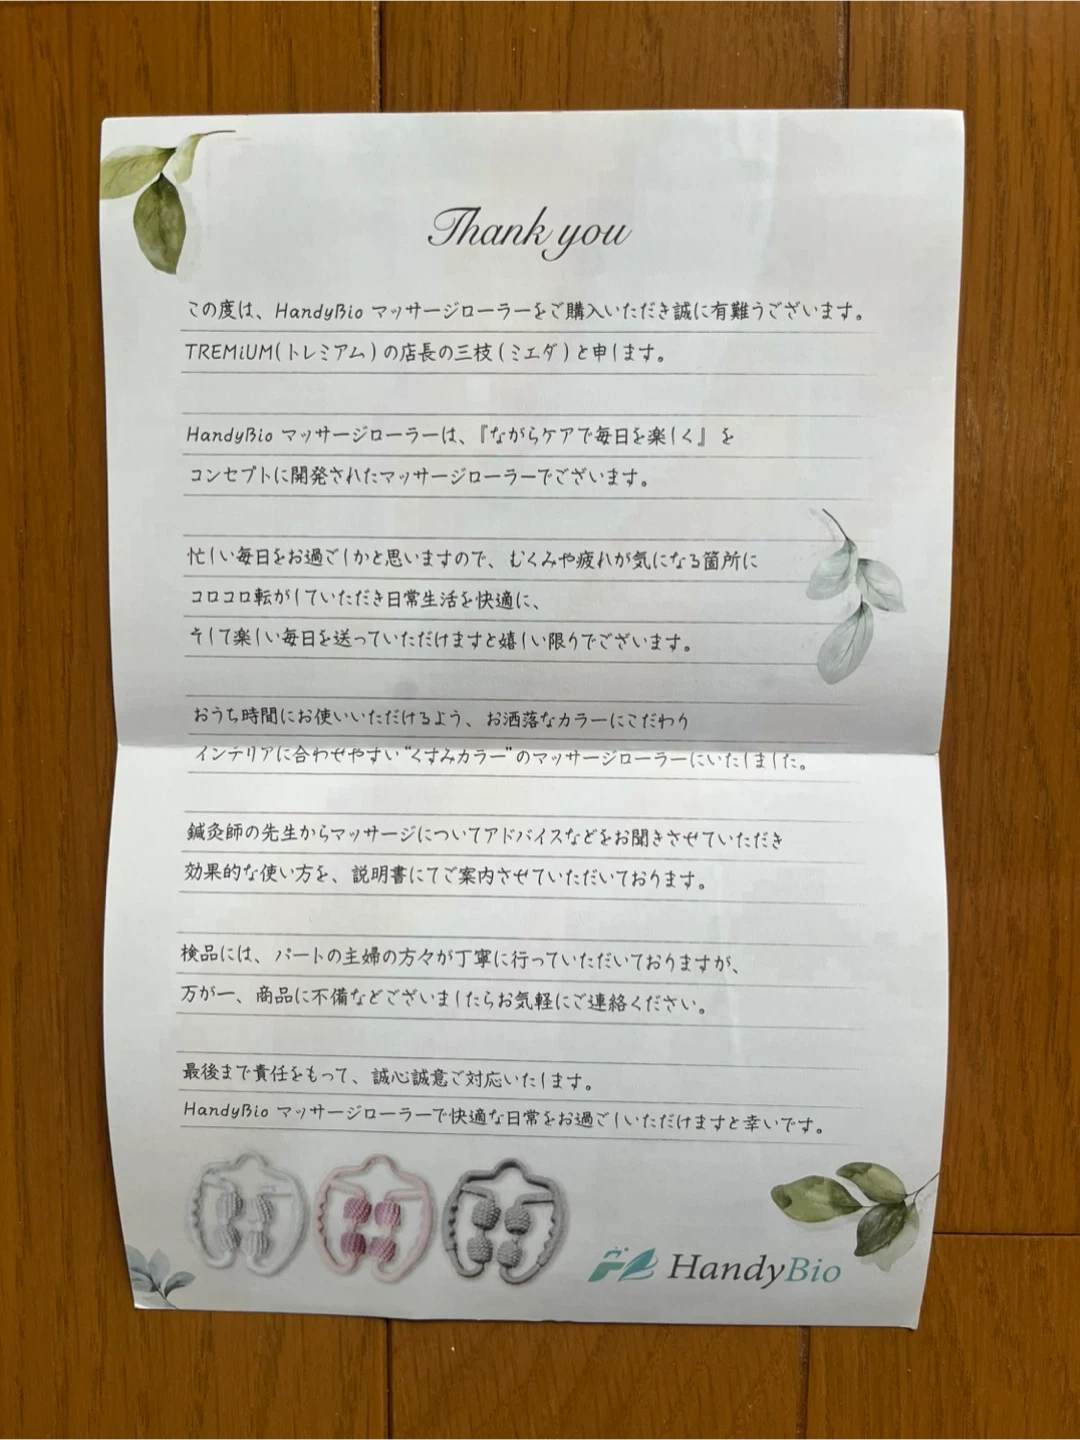 Thank you
この度は、HandyBio マッサージローラーをご購入いただき誠に有難うございます。
TREMiUM(トレミアム)の店長の三枝(ミエダ)と申します。
HandyBio マッサージローラーは、『ながらケアで毎日を楽しく』を
コンセプトに開発されたマッサージローラーでございます。
忙しい毎日をお過ごしかと思いますので、むくみや疲れが気になる箇所に
コロコロ転がしていただき日常生活を快適に、
そして楽しい毎日を送っていただけますと嬉しい限りでございます。
おうち時間にお使いいただけるよう、お洒落なカラーにこだわり
インテリアに合わせやすい“くすみカラー”のマッサージローラーにいたしました。
鍼灸師の先生からマッサージについてアドバイスなどをお聞きさせていただき
効果的な使い方を、説明書にてご案内させていただいております。
検品には、パートの主婦の方々が丁寧に行っていただいておりますが、
万が一、商品に不備などございましたらお気軽にご連絡ください。
最後まで責任をもって、誠心誠意ご対応いたします。
HandyBio マッサージローラーで快適な日常をお過ごしいただけますと幸いです。
HandyBio